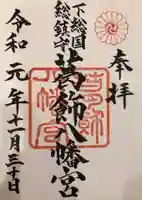 奉拝
下総国
総鎮守
葛飾八幡宮
令和元年十一月三十日